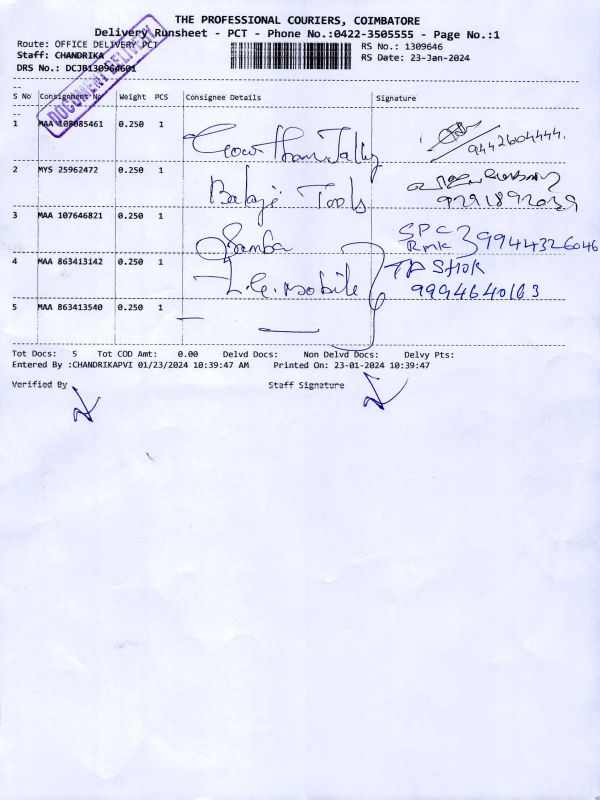 THE PROFESSIONAL COURIERS, COIMBATORE
Delivery Runsheet - PCT - Phone No.:0422-3505555 - Page No.:1
Route: OFFICE DELIVERY PCT
RS No.: 1309646
Staff: CHANDRIKA
RS Date: 23-Jan-2024
DRS No.: DCJB130964601
DOCUMENT DELIVERY
S No Consignment No Weight PCS Consignee Details Signature
1 MAA 108085461 0.250 1 Gowtham Tally 9442604444.
2 MYS 25962472 0.250 1 Balaje Tools
3 MAA 107646821 0.250 1 Samba SPC RMK 39944326046
4 MAA 863413142 0.250 1 L.G. mobile
9994640163
5 MAA 863413540 0.250 1
Tot Docs: 5 Tot COD Amt: 0.00 Delvd Docs: Non Delvd Docs: Delvy Pts:
Entered By :CHANDRIKAPVI 01/23/2024 10:39:47 AM Printed On: 23-01-2024 10:39:47
Verified By Staff Signature